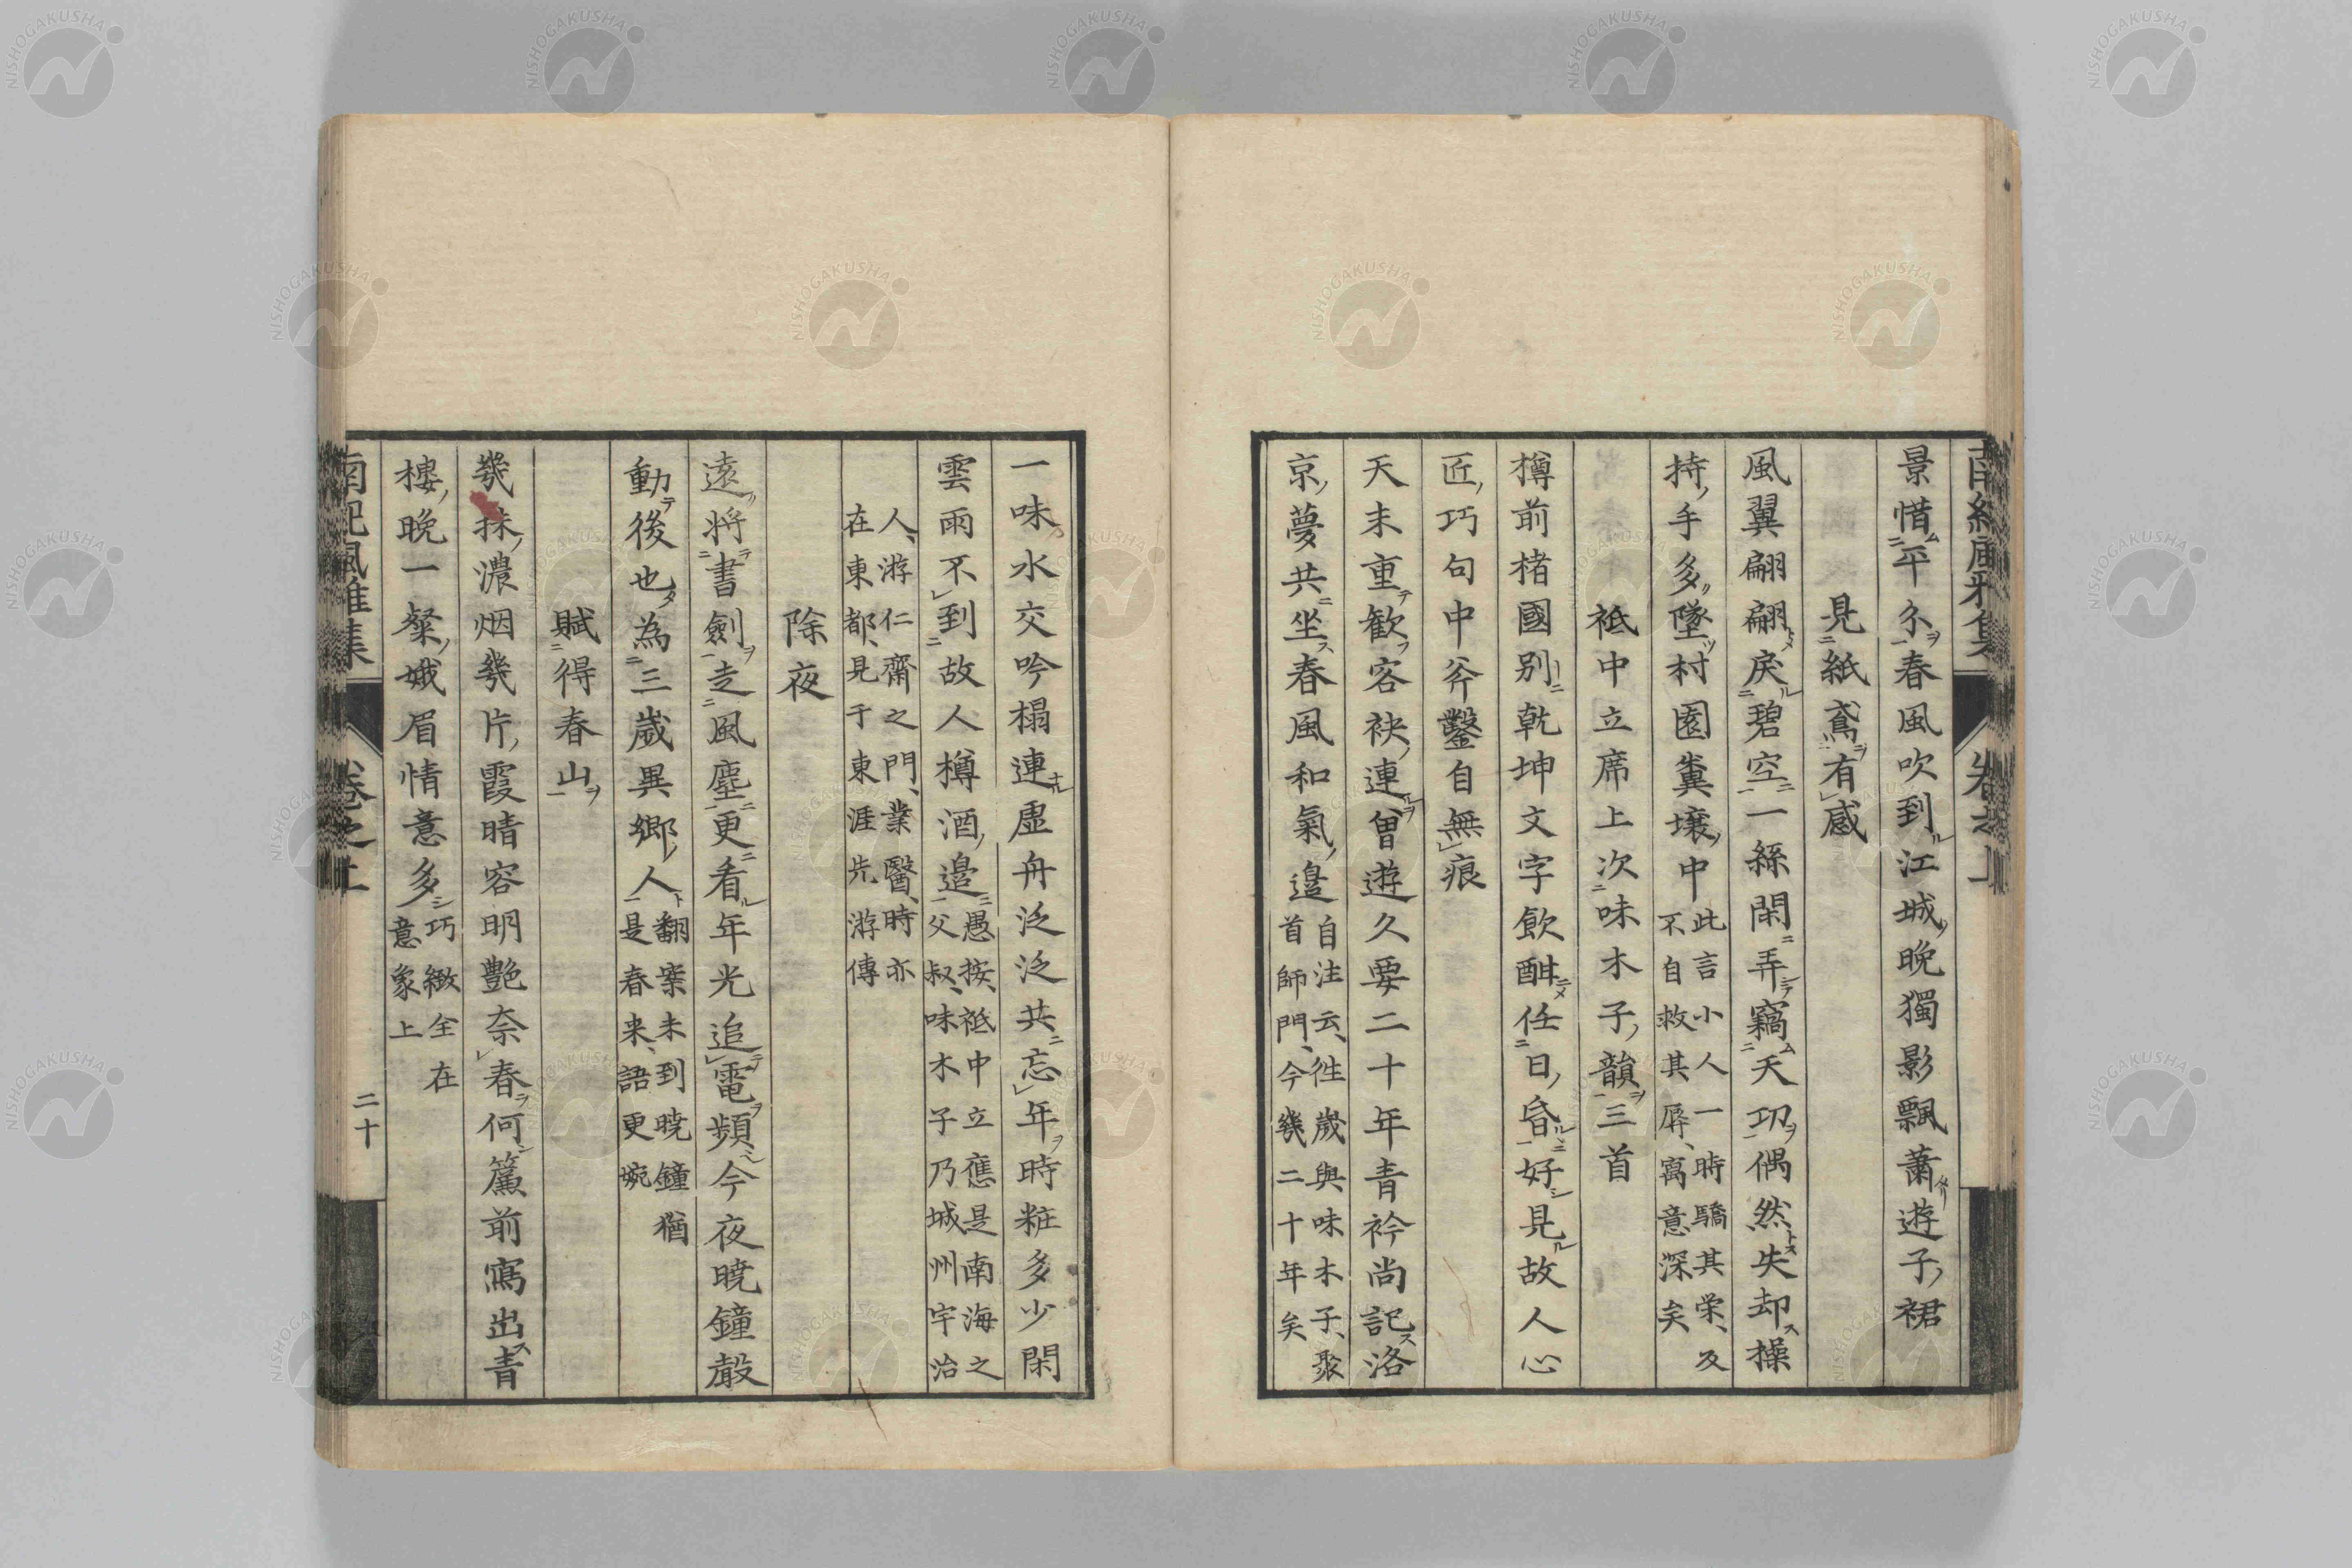 景惜平分春風吹到江城晩獨影飄蕭遊子裙
見紙鳶有感
風翼翩翩戻碧空一絲閑弄竊天功偶然失却操
持手多墜村園糞壤中此言小人一時驕其栄又
不自救其辱寓意深矣
祗中立席上次味木子韻三首
樽前楮國別乾坤文字飲酣任日昏好見故人心
匠巧句中斧鑿自無痕
天末重歓容袂連曽遊久要二十年青衿尚記洛
京夢共坐春風和氣邉自注云徃歳與味木子聚
首師門今幾二十年矣
一味水交吟榻連虚舟泛泛共忘年時粧多少閑
雲雨不到故人樽酒邉愚按祗中立應是南海之
父叔味木子乃城州宇治
人游仁齋之門業醫時亦
在東都見于東涯先游傳
除夜
遠將書劍走風塵更看年光追電頻今夜暁鐘聲
動後也為三歳異郷人翻案未到暁鐘猶
是春来語更婉
賦得春山
幾抹濃烟幾片霞晴容明艶奈春何簾前寫出青
樓晩一粲娥眉情意多巧緻全在
意象上
南紀風雅集 巻之上 二十
南紀風雅集 巻之上
NISHOGAKUSHA